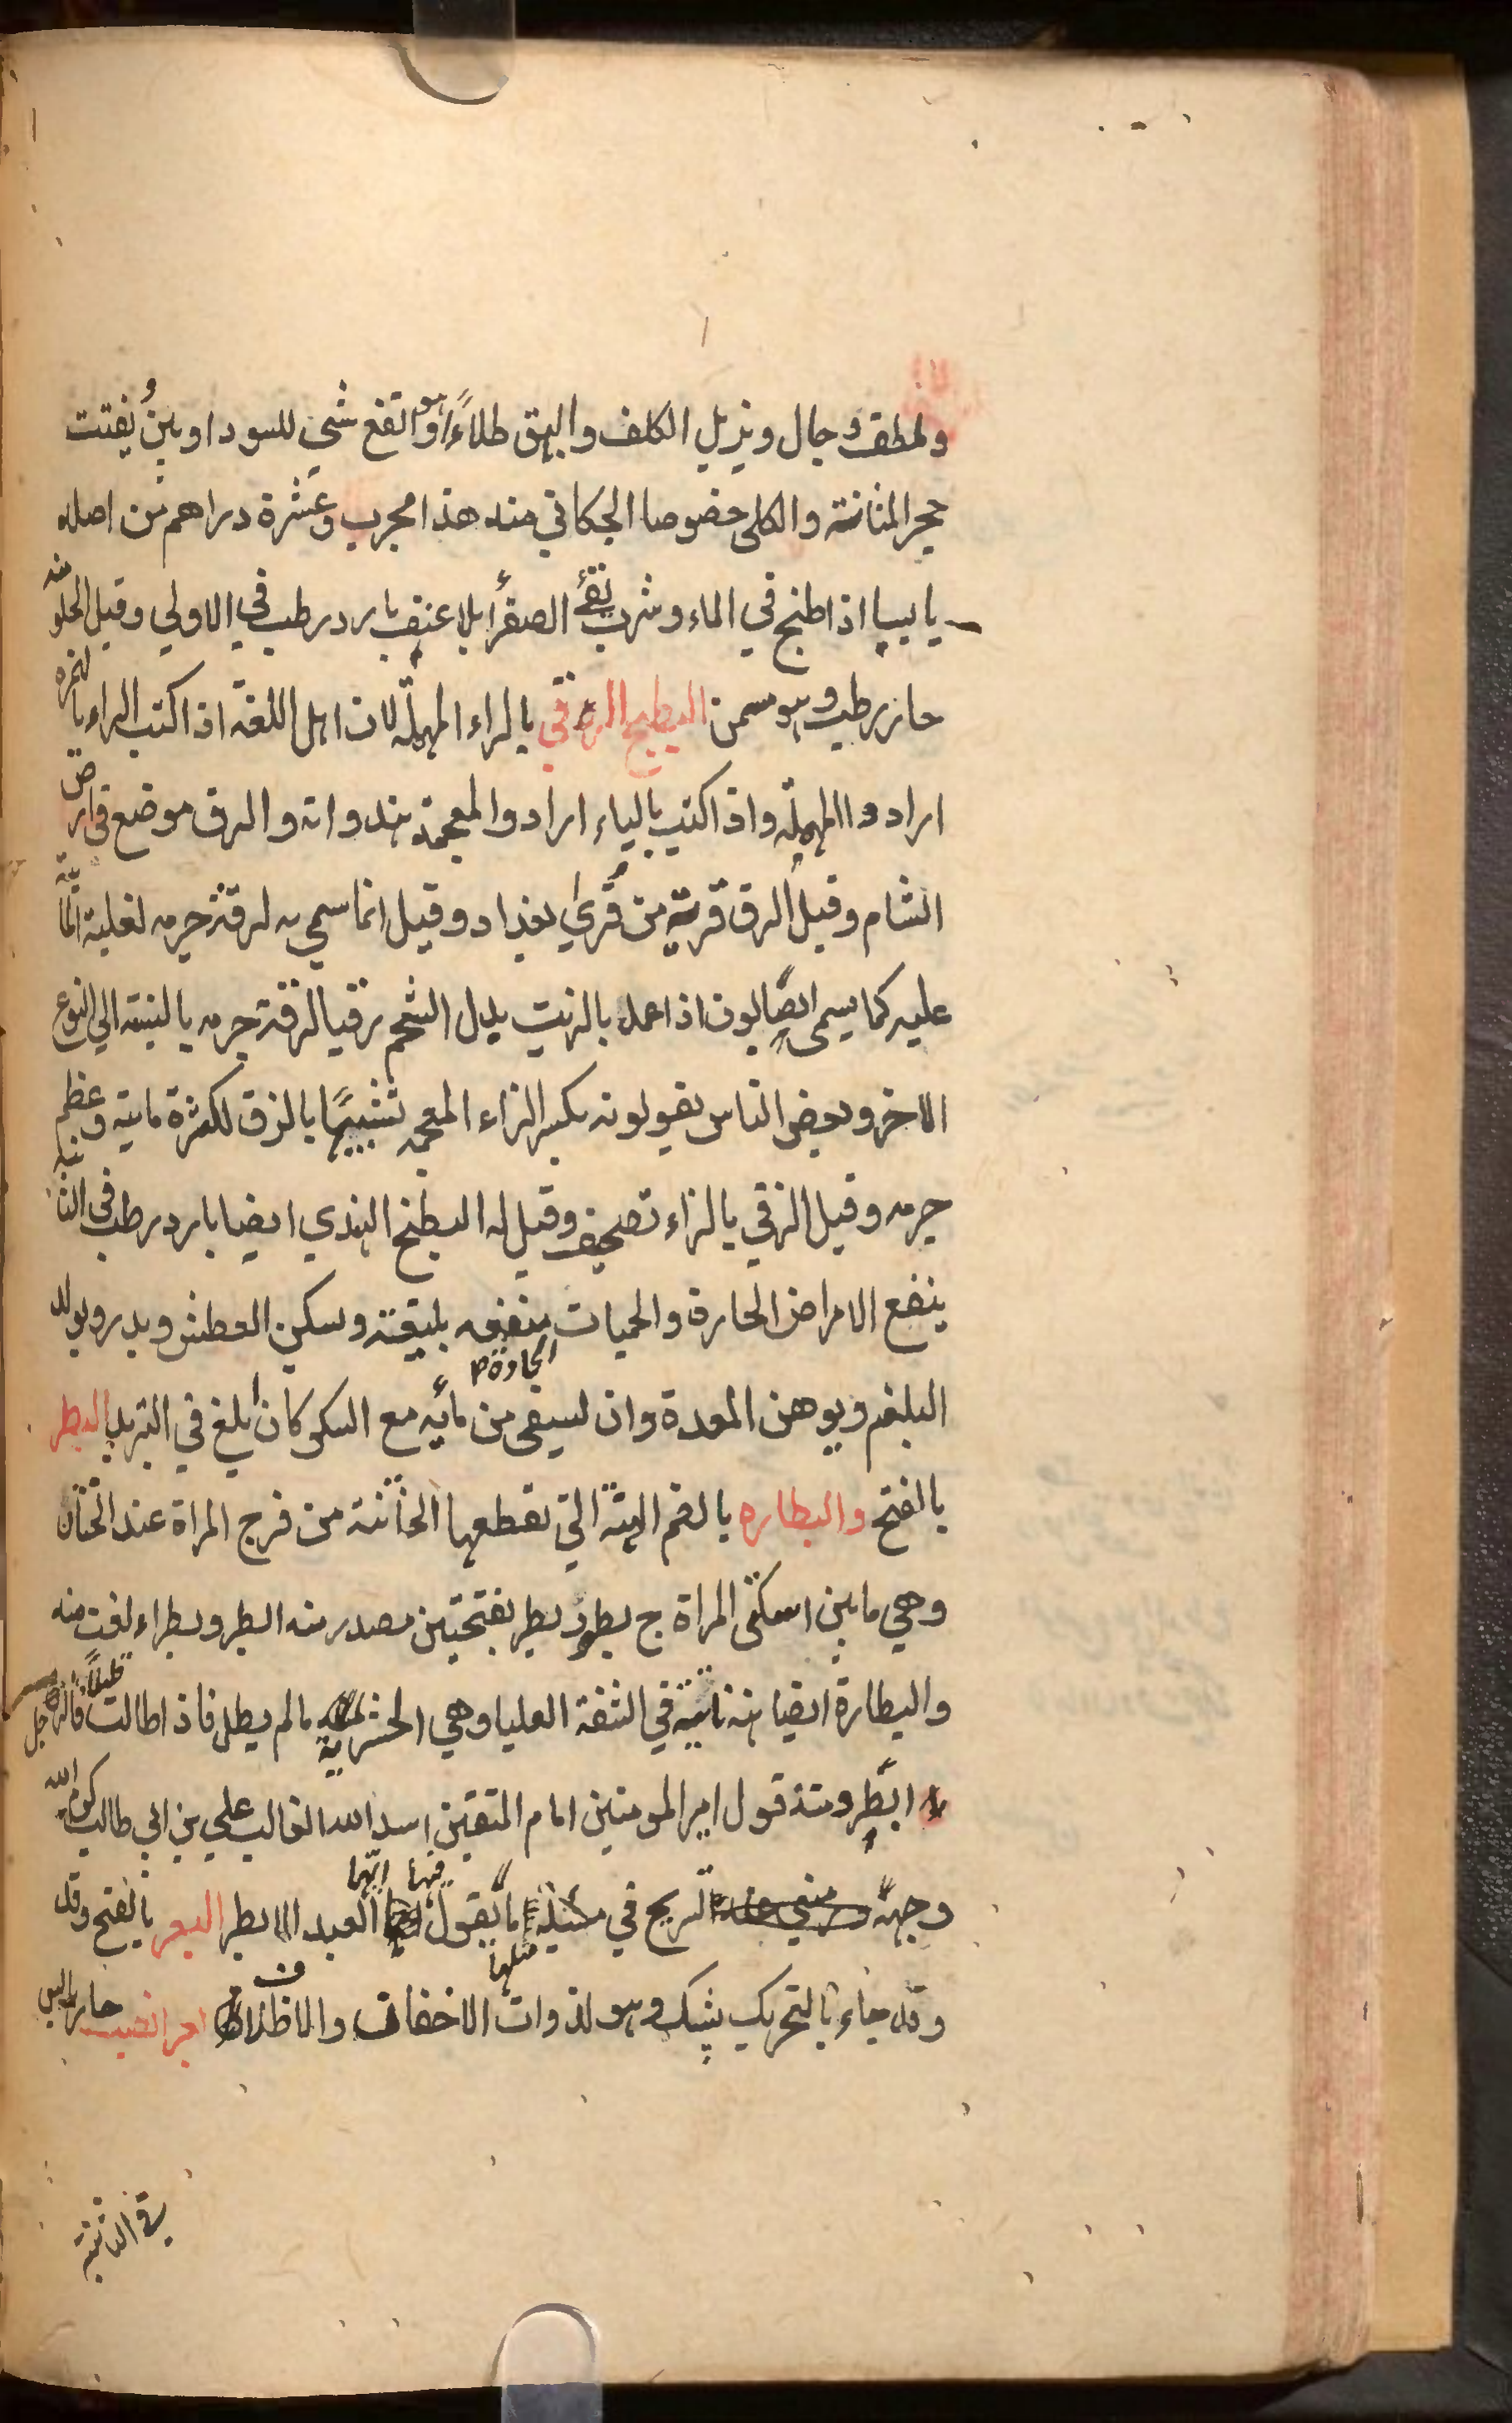 وملطف وجال ويزيل الكلف والبهق طلاءً وهو انفع شي للسوداوين يُفتت
حجر المثانة والكلى خصوصا الحكاني منه هذا مجرب وعشرة دراهم من اصله
يابسا اذا طبخ في الماء وشرب نقئ الصفرأ بلا عنف بارد رطب في الاولي وقيل الحلو منه
حار رطب وهو مسمن البطيخ الرقي بالراء المهملة لان اهل اللغة اذا كتب الراء بالهمزه
ارادوا المهملة واذا كتب بالياء ارادوا المعجمة هندوانه والرق موضع في ارض
الشام وقيل الرق قرية من قُرئ بغداد وقيل انما سمي به لرقة جرمه لغلبة المائية
عليه كما يسمى الصابون اذا عمل بالزيت بدل الشحم رقيا لرقة جرمه بالنسبة الي النوع
الاخر وبعض الناس يقولونه بكسر الزاء المعجمه تشبيهًا بالزق لكثرة مايته وعظم
جرمه وقيل الزقي بالزاء تصحيف وقيل له البطيخ الهندي ايضا بارد رطب في الثانيه
ينفع الامراض الحارة والحميات الحادة منفعه بليغة ويسكن العطش ويدر ويولد
البلغم ويوهن المعدة وان يسقى من مائه مع السكر كان ابلغ في التبريد البظر
بالفتح والبظاره بالضم الهنة التي تقطعها الخاتنة من فرج المراة عند الختان
وهي ما بين اسكتى المراة ج بظور وبظر بفتحتين مصدر منه البظر وبظراء لغت منه
والبظارة ايضا هنة ناتية في الشفة العليا وهي الحثرمة ما لم يطل فاذا طالت قليلاً فالرجل
ابظر ومنه قول امير المومنين امام المتقين اسد الله الغالب علي بن ابي طالب كرم الله
وجهه لشريح في مسئلة ما تقول فيها ايها العبد الابظر البعر بالفتح وقد
وقد جاء بالتحريك پشك وهو لذوات الاخفاف والاظلاف بعر الضب حار يابس
في الثانية